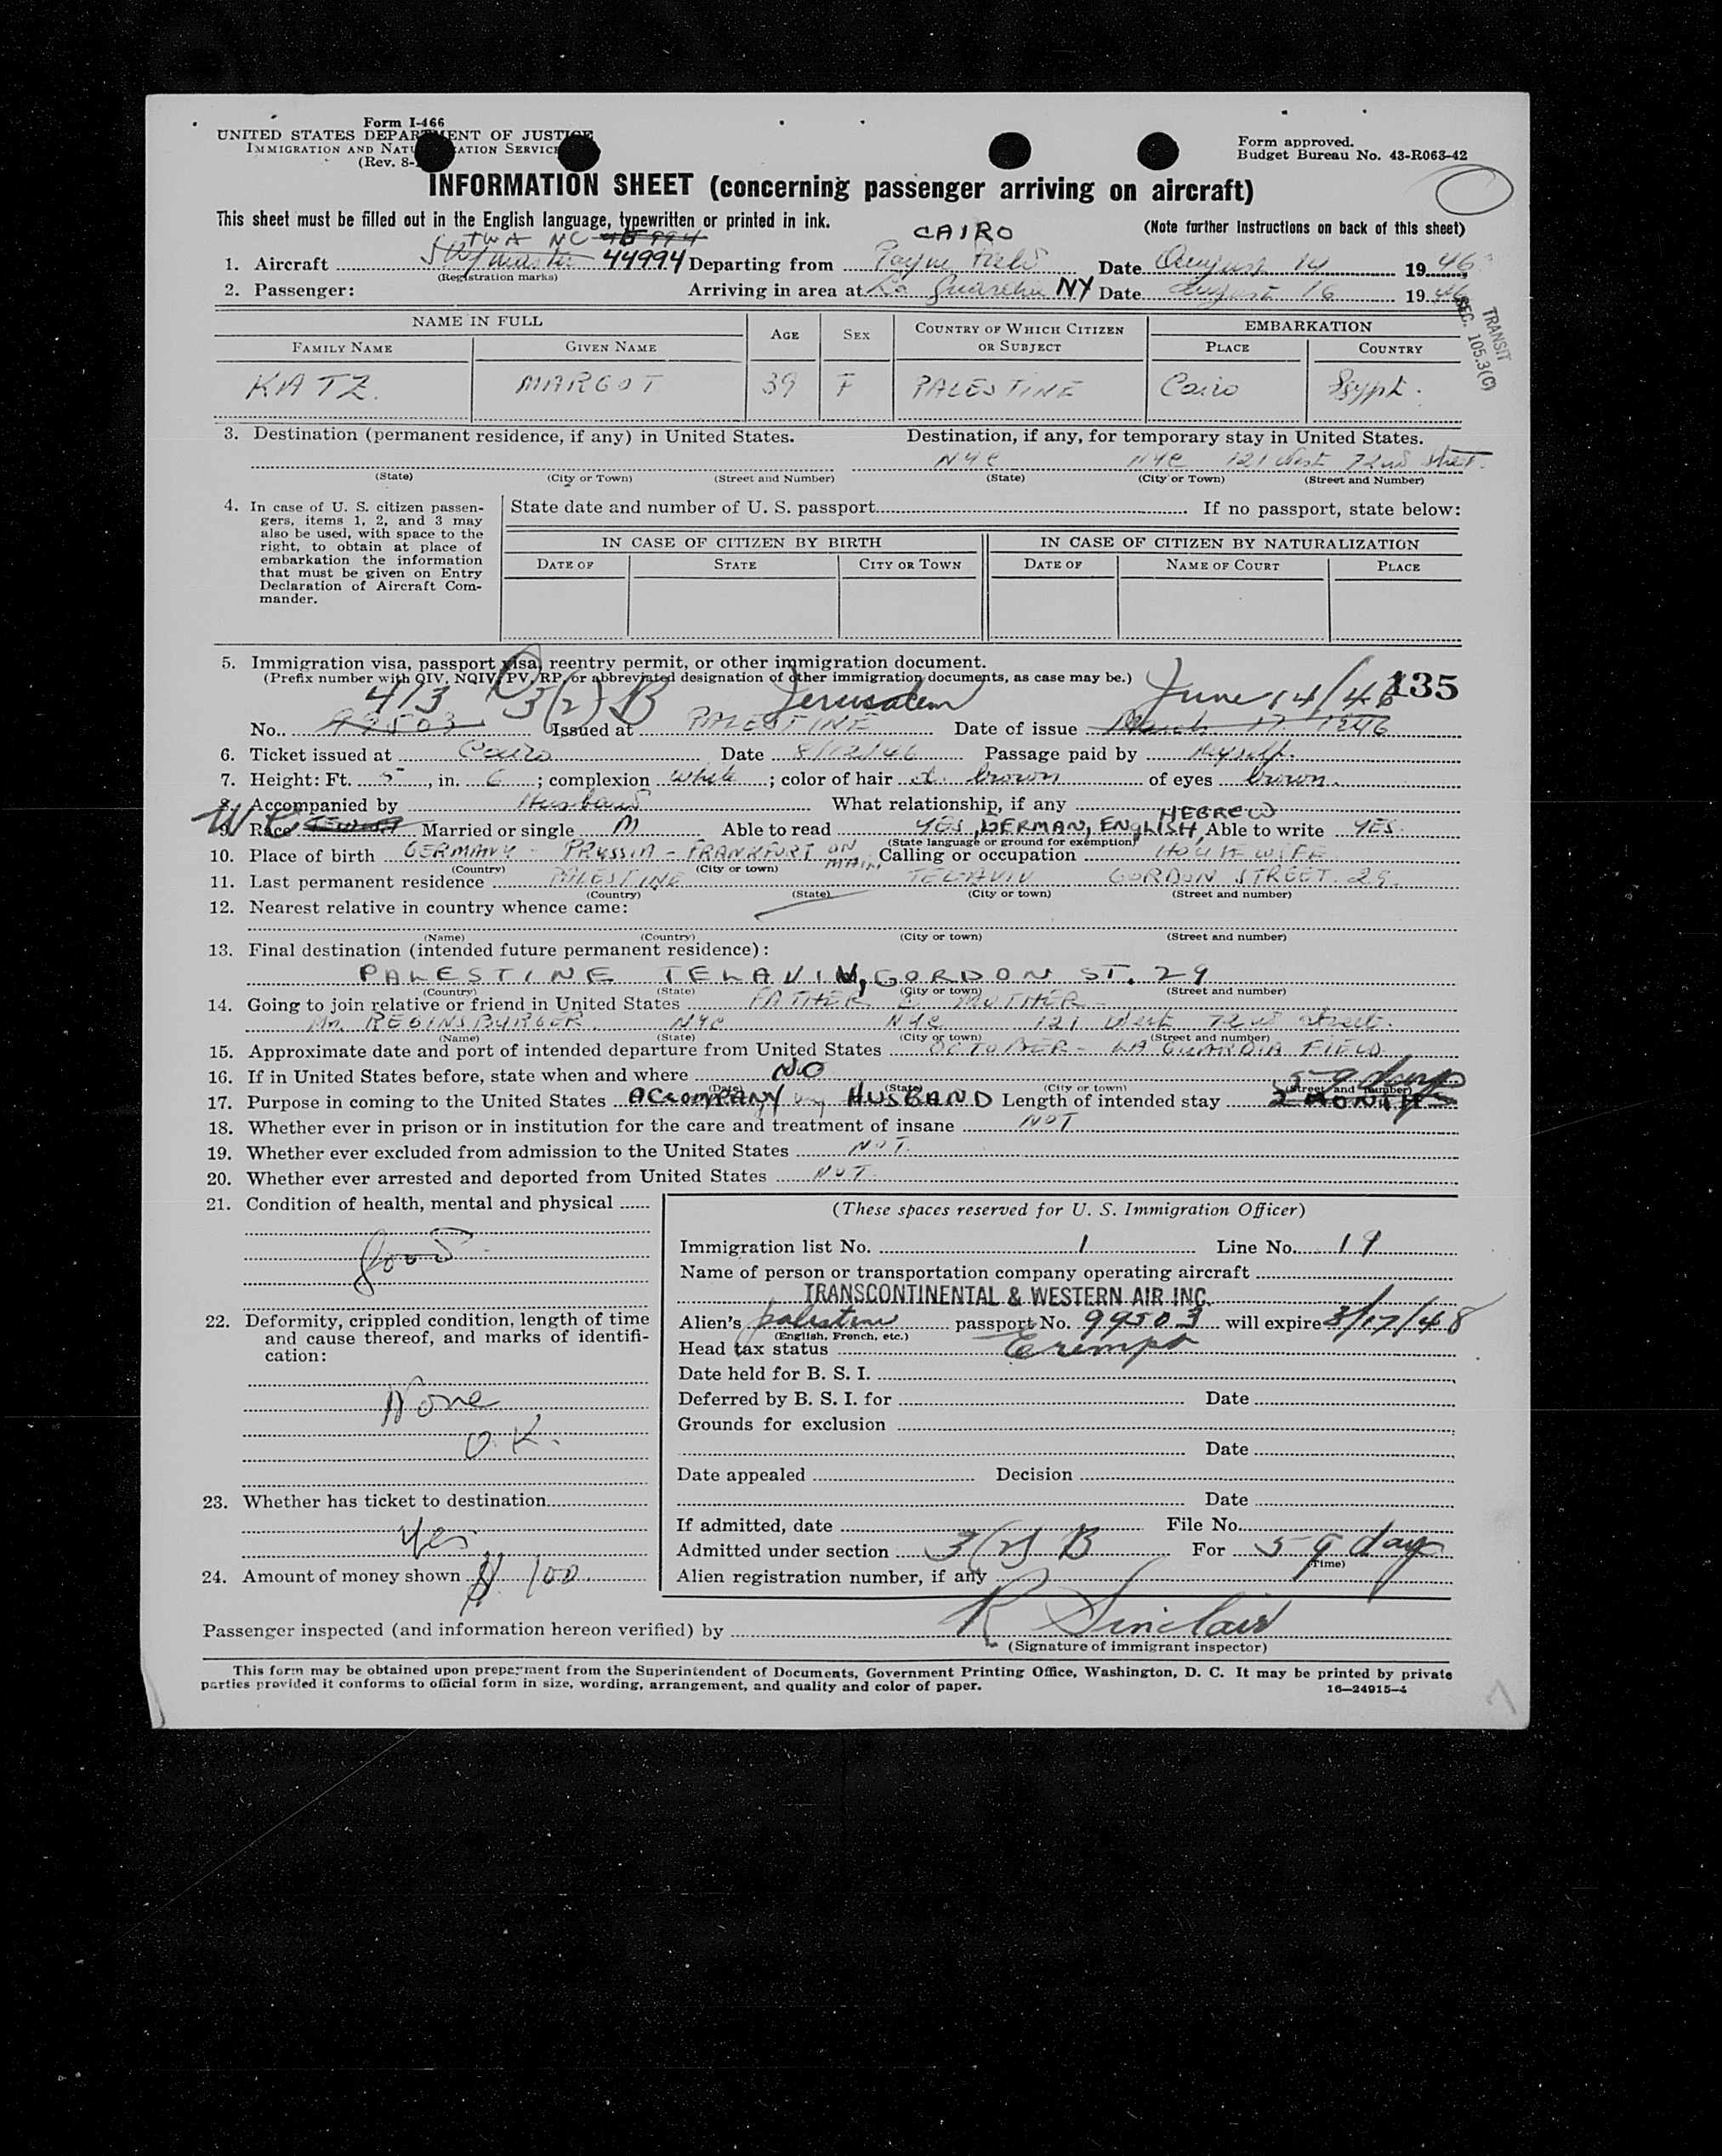 Form I-466
UNITED STATES DEPARTMENT OF JUSTICE
IMMIGRATION AND NATURALIZATION SERVICE
(Rev. 8-
Form approved.
Budget Bureau No. 43-R063-42
INFORMATION SHEET (concerning passenger arriving on aircraft)
This sheet must be filled out in the English language, typewritten or printed in ink.
(Note further instructions on back of this sheet)
TWA NC CAIRO
1. Aircraft 44994 Departing from Payne Field Date August 14 1946
(Registration marks)
2. Passenger: Arriving in area at La Guardia NY Date August 16 1946
TRANSIT
SEC. 105.3(C)
NAME IN FULL AGE SEX COUNTRY OF WHICH CITIZEN OR SUBJECT EMBARKATION
FAMILY NAME GIVEN NAME PLACE COUNTRY
KATZ. MARGOT 39 F PALESTINE Cairo Egypt.
3. Destination (permanent residence, if any) in United States. Destination, if any, for temporary stay in United States.
NYC NYC 121 West 72nd street.
(State) (City or Town) (Street and Number) (State) (City or Town) (Street and Number)
4. In case of U. S. citizen passengers, items 1, 2, and 3 may also be used, with space to the right, to obtain at place of embarkation the information that must be given on Entry Declaration of Aircraft Commander.
State date and number of U. S. passport If no passport, state below:
IN CASE OF CITIZEN BY BIRTH IN CASE OF CITIZEN BY NATURALIZATION
DATE OF STATE CITY OR TOWN DATE OF NAME OF COURT PLACE
5. Immigration visa, passport visa, reentry permit, or other immigration document.
(Prefix number with QIV, NQIV, PV, RP, or abbreviated designation of other immigration documents, as case may be.)
413 3(2) B Jerusalem June 14/46 135
No. 99503 Issued at PALESTINE Date of issue March 17 1946
6. Ticket issued at Cairo Date 8/12/46 Passage paid by Myself.
7. Height: Ft. 5, in. 6; complexion white; color of hair d. brown of eyes brown.
8. Accompanied by Husband What relationship, if any
HEBREW
9. Race Married or single M Able to read YES, GERMAN, ENGLISH, Able to write YES.
(State language or ground for exemption)
10. Place of birth GERMANY - PRUSSIA - FRANKFORT ON MAIN Calling or occupation HOUSEWIFE
(Country) (City or town)
11. Last permanent residence PALESTINE TELAVIV GORDON STREET. 29.
(Country) (State) (City or town) (Street and number)
12. Nearest relative in country whence came:
(Name) (Country) (City or town) (Street and number)
13. Final destination (intended future permanent residence):
PALESTINE TELAVIV, GORDON ST. 29
(Country) (State) (City or town) (Street and number)
14. Going to join relative or friend in United States FATHER & MOTHER -
Mr. REGINSBURGER. NYC NYC 121 West 72nd street.
(Name) (State) (City or town) (Street and number)
15. Approximate date and port of intended departure from United States OCTOBER - LA GUARDIA FIELD
16. If in United States before, state when and where NO
(Date) (State) (City or town) (Street and number)
59 days
17. Purpose in coming to the United States ACCOMPANY my HUSBAND Length of intended stay 2 MONTHS
18. Whether ever in prison or in institution for the care and treatment of insane NOT
19. Whether ever excluded from admission to the United States NOT.
20. Whether ever arrested and deported from United States NOT.
21. Condition of health, mental and physical
Good
22. Deformity, crippled condition, length of time and cause thereof, and marks of identification:
None
O.K.
23. Whether has ticket to destination
Yes
24. Amount of money shown $ 100.
(These spaces reserved for U. S. Immigration Officer)
Immigration list No. 1 Line No. 19
Name of person or transportation company operating aircraft
TRANSCONTINENTAL & WESTERN AIR INC.
Alien's palestine passport No. 99503 will expire 3/17/48
(English, French, etc.)
Head tax status Exempt
Date held for B. S. I.
Deferred by B. S. I. for Date
Grounds for exclusion
Date
Date appealed Decision
Date
If admitted, date File No.
Admitted under section 3(2) B For 59 days
(Time)
Alien registration number, if any
Passenger inspected (and information hereon verified) by R Sinclair
(Signature of immigrant inspector)
This form may be obtained upon prepayment from the Superintendent of Documents, Government Printing Office, Washington, D. C. It may be printed by private
parties provided it conforms to official form in size, wording, arrangement, and quality and color of paper.
16—24915-4